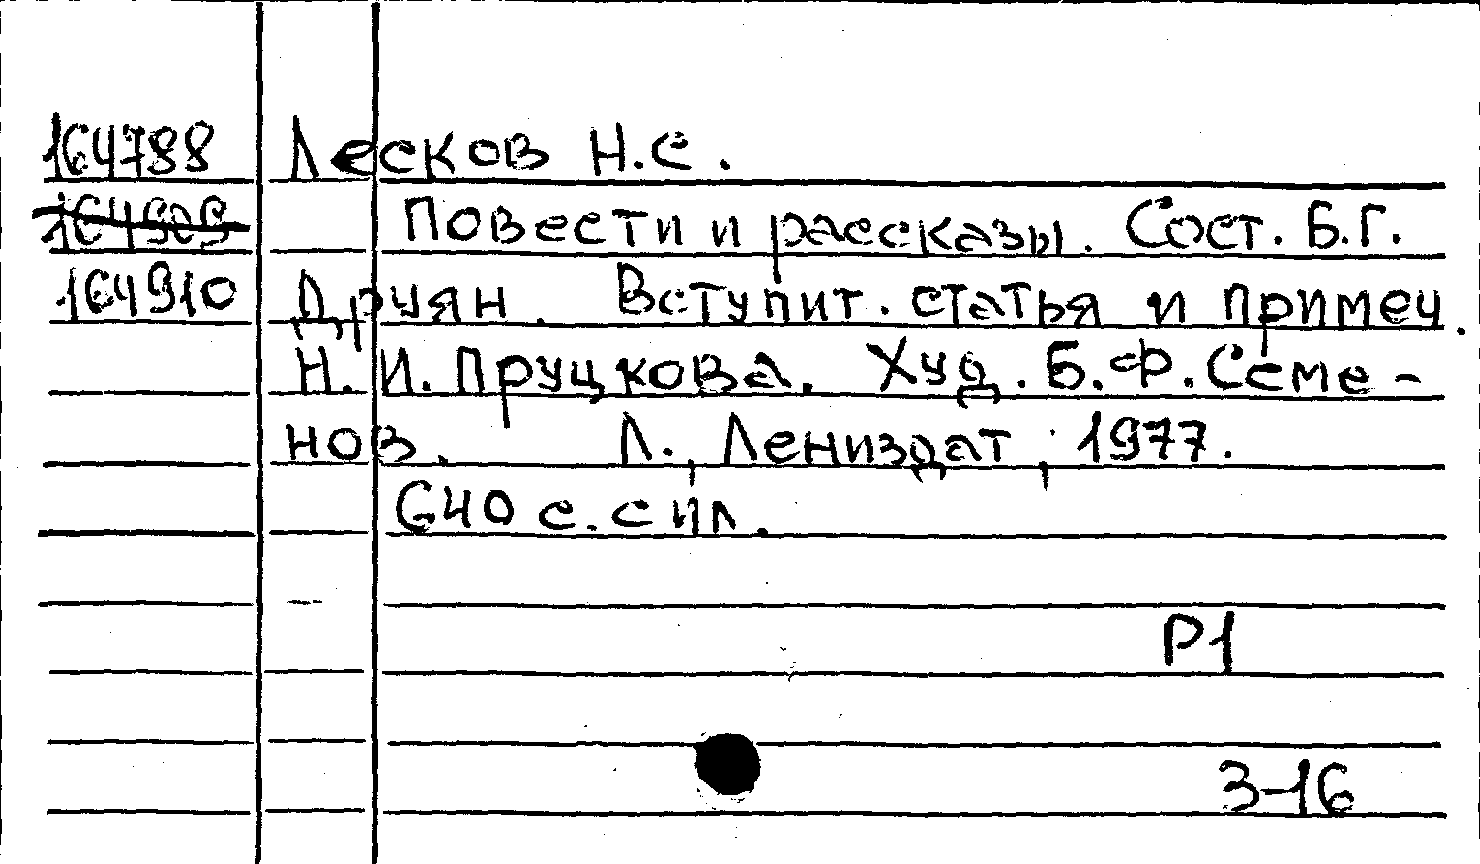 164788 Лесков Н.С.
164909 Повести и рассказы. Сост. Б.Г.
164910 Друян. Вступит. статья и примеч.
Н.И.Пруцкова. Худ. Б.Ф.Семе-
нов. Л., Лениздат, 1977.
640 с. с ил.
Р1
3-16